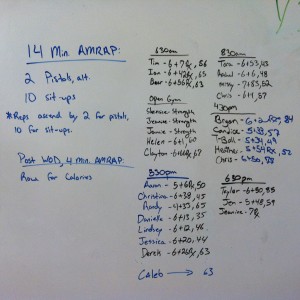 14 Min AMRAP:
2 Pistols, alt.
10 sit-ups
*Reps ascend by 2 for pistols,
10 for sit-ups.
Post WOD, 4 min. AMRAP:
Row for Calories
630am
Tim - 6+7Rx, 66
Ian - 6+42Rx, 65
Bear - 6+56Rx, 63
Open Gym
Strength
Jeanie - Strength
Jamie - Strength
Helen - 6+1, 67
Clayton - 6+60Rx, 67
330pm
Aaron - 5+60Rx, 50
Christina - 6+38, 45
Randy - 4+33, 65
Daniella - 6+13, 35
Lindsey - 6+12, 46
Jessica - 6+20, 44
Derek - 6+26Rx, 63
Caleb → 63
830am
Tara - 6+53, 43
- 6+6, 48
Missy - 7+83, 52
Chris - 6+1, 57
430pm
Bryan - 6+
Candice - 5+33, 57
T-Bell - 5+31, 49
Heather - 5+54Rx, 52
Chris - 6+50, 88
630pm
Taylor - 6+50, 55
Jen - 5+48, 59
Jeanine - 7Rx